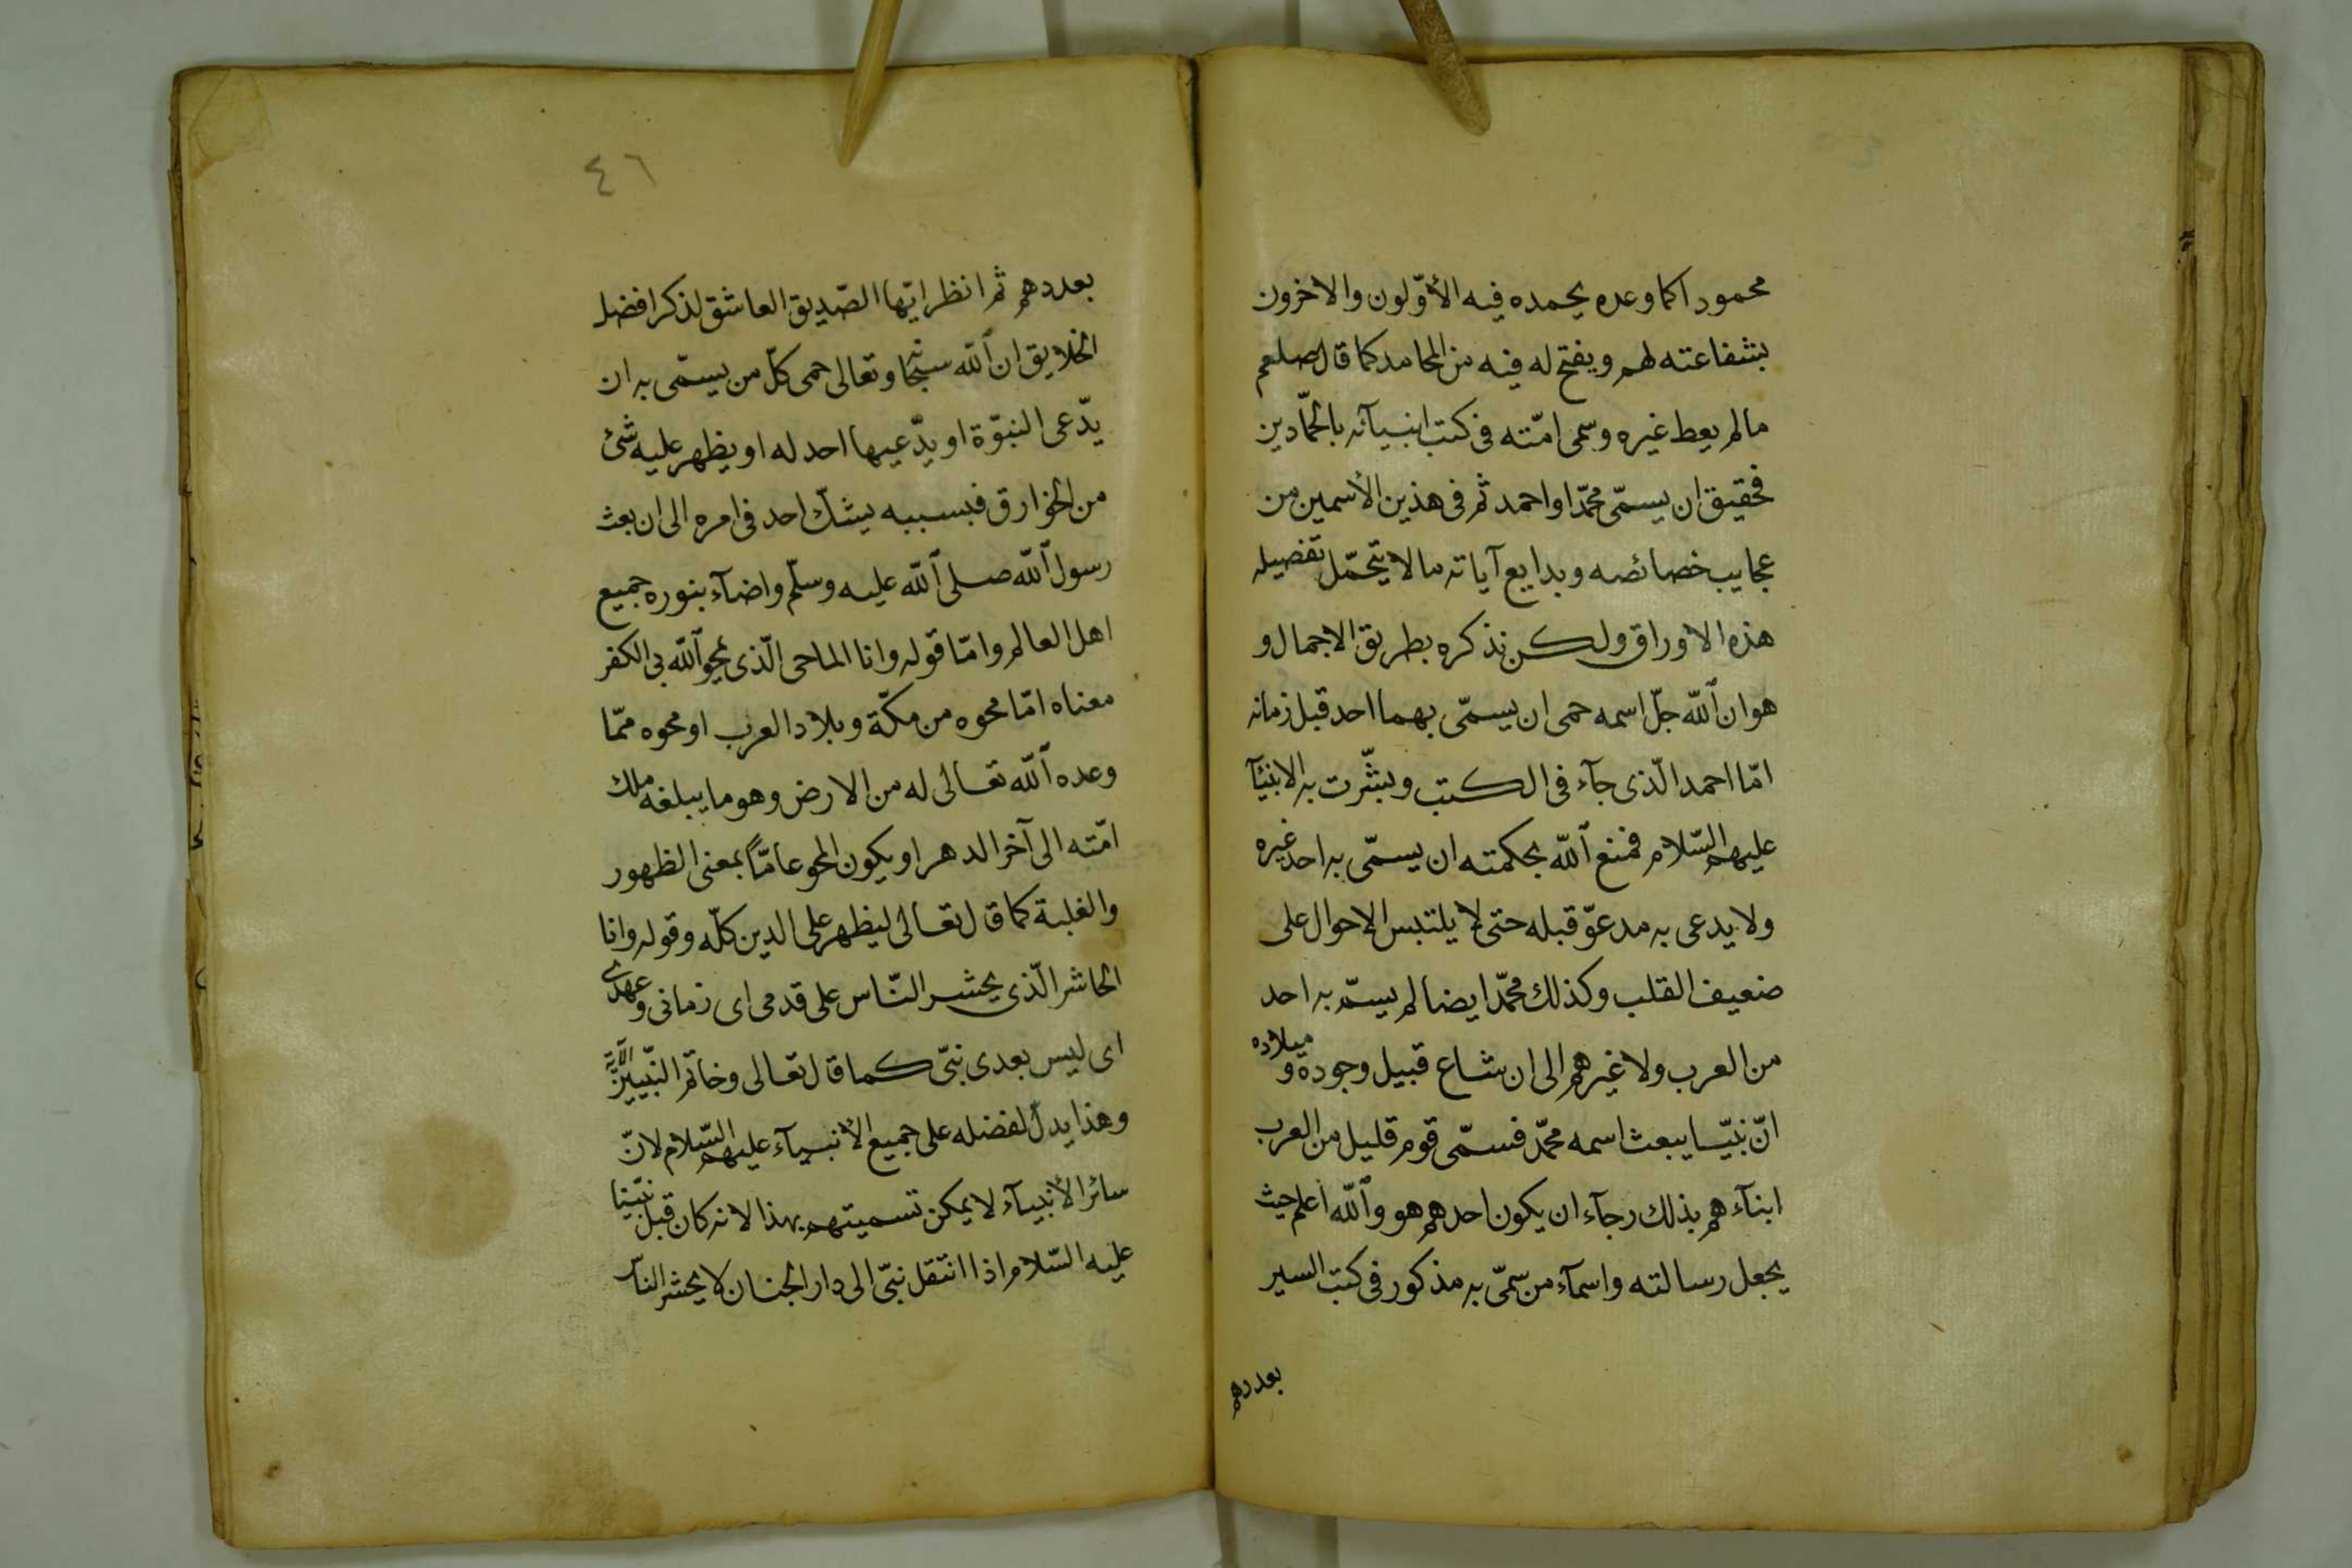 محمودا كما وعده يحمده فيه الأوّلون والاخرون
بشفاعته لهم ويفتح له فيه من المحامد كما قال صلعم
مالم يعط غيره وسمى امّته فى كتب انبيآئه بالحمّادين
فحقيق ان يسمّى محمّدا واحمد ثم فى هذين الأسمين من
عجايب خصائصه وبدايع آياته مالا يتحمّل تفضيله
هذه الاوراق ولكن نذكره بطريق الاجمال و
هو ان ألله جلّ اسمه حمى ان يسمّى بهما احد قبل زمانه
امّا احمد الّذى جآء فى الكتب وبشّرت به الانبيآ
عليهم السّلام فمنع ألله بحكمته ان يسمّى به احد غيره
ولا يدعى به مدعوّ قبله حتى لا يلتبس الاحوال على
ضعيف القلب وكذلك محمّد ايضا لم يسمّ به احد
من العرب ولا غيرهم الى ان شاع قبيل وجوده و ميلاده
انّ نبيّا يبعث اسمه محمّد فسمّى قوم قليل من العرب
ابنآءهم بذلك رجآء ان يكون احدهم هو وألله أعلم حيث
يجعل رسالته واسمآء من سمّى به مذكور فى كتب السير
بعددهم
٤٦
بعددهم ثم انظر ايّها الصّديق العاشق لذكر افضل
الخلايق ان ألله سبحانه وتعالى حمى كلّ من يسمّى به ان
يدّعى النبوّة او يدّعيها احد له او يظهر عليه شئ
من الخوارق فبسببه يشكّ احد فى امره الى ان بعث
رسول ألله صلى ألله عليه وسلّم واضآء بنوره جميع
اهل العالم وامّا قوله وانا الماحى الّذى يمحو ألله بى الكفر
معناه امّا محوه من مكّة وبلاد العرب او محوه ممّا
وعده ألله تعالى له من الارض وهو ما يبلغه ملك
امّته الى آخر الدهر او يكون المحو عامّاً بمعنى الظهور
والغلبة كما قال تعالى ليظهر على الدين كلّه وقوله وانا
الحاشر الّذى يحشر النّاس على قدمى اى زمانى وعهدى
اى ليس بعدى نبىّ كما قال تعالى وخاتم النّبيين الآية
وهذا يدلّ لفضله على جميع الأنبيآء عليهم السّلام لانّ
سائر الأنبيآء لا يمكن تسميتهم بهذا لانه كان قبل نبيّنا
عليه السّلام اذا انتقل نبىّ الى دار الجنان لا يحشر النّاس